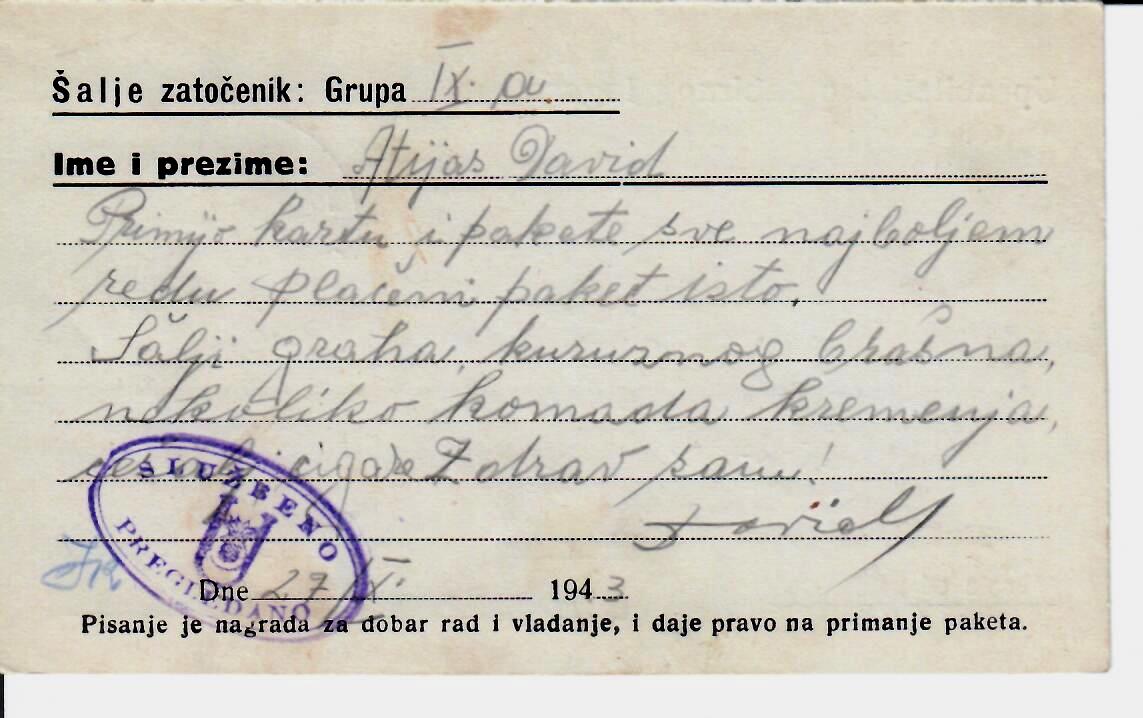 Šalje zatočenik: Grupa IX. a
Ime i prezime: Atijas David
Primijo kartu i pakete sve najboljem
redu plaćeni paket isto.
Šalji graha, kuruznog brašna,
nekoliko komada kremenja,
cigare Zdrav sam!
David
SLUŽBENO
PREGLEDANO
Dne 27 IX. 1943
Pisanje je nagrada za dobar rad i vladanje, i daje pravo na primanje paketa.